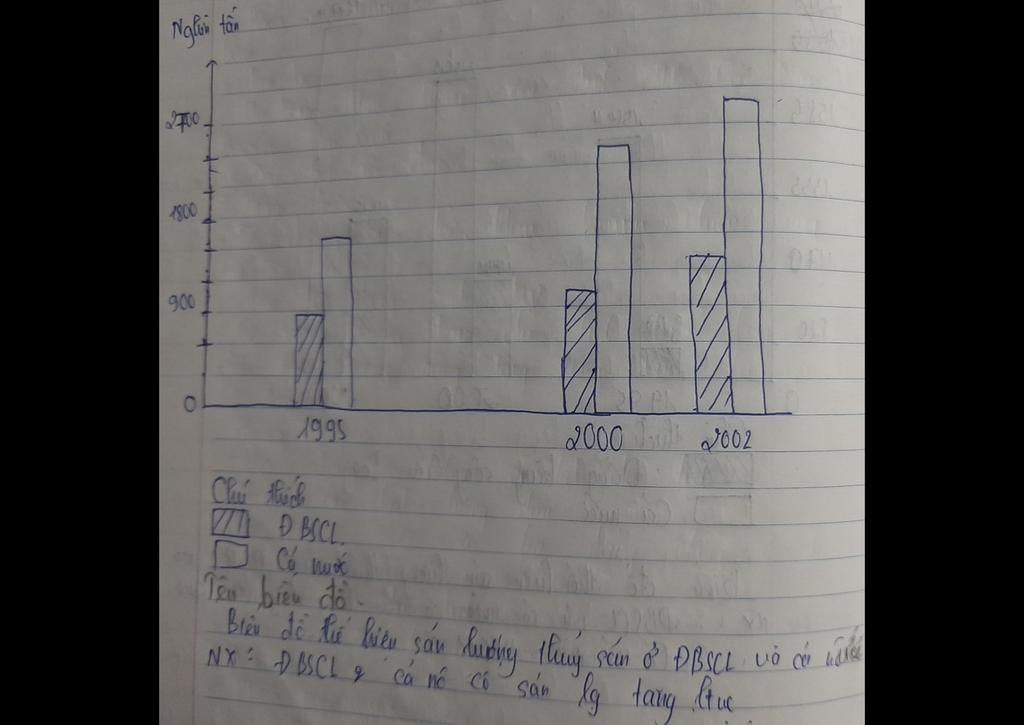 Nghìn tấn
2700
1800
900
0
1995 2000 2002
Chú thích
ĐBSCL.
Cả nước
Tên biểu đồ.
Biểu đồ thể hiện sản lượng thủy sản ở ĐBSCL và cả nước
NX: ĐBSCL & cả nc có sản lg tăng ltuc